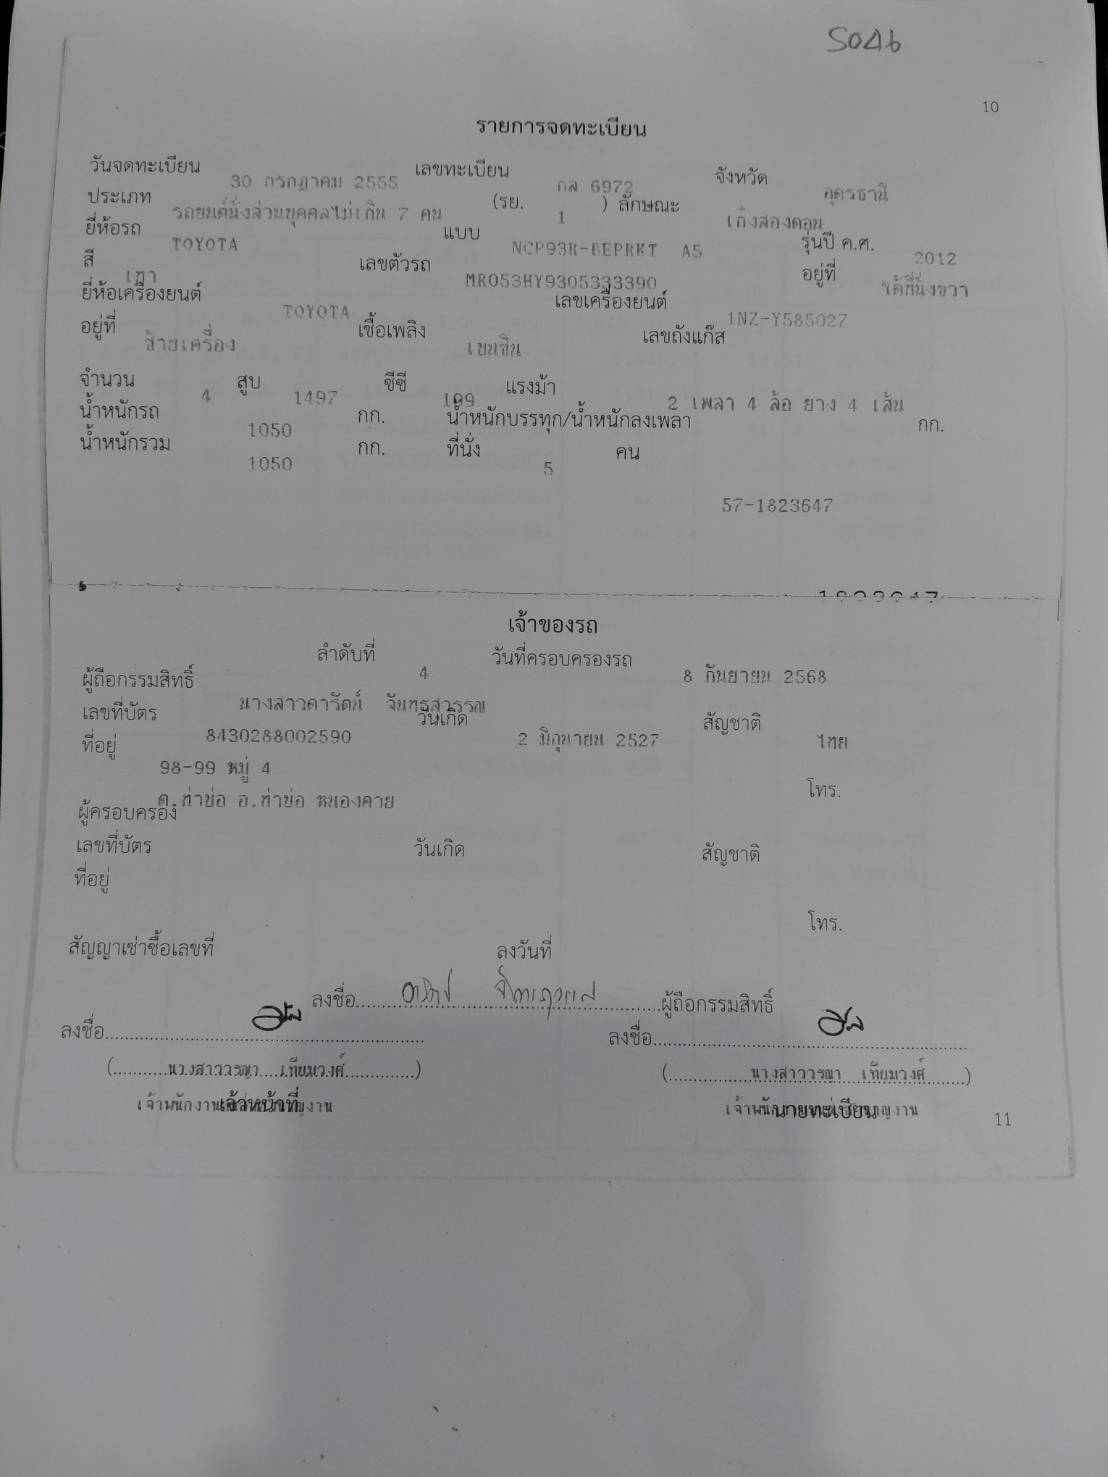 5046
10
รายการจดทะเบียน
วันจดทะเบียน 30 กรกฎาคม 2555 เลขทะเบียน กล 6972 จังหวัด อุดรธานี
ประเภท รถยนต์นั่งส่วนบุคคลไม่เกิน 7 คน (รย. 1 ) ลักษณะ เก๋งสองตอน
ยี่ห้อรถ TOYOTA แบบ NCP93R-BEPRKT A5 รุ่นปี ค.ศ. 2012
สี เทา เลขตัวรถ MR053HY9305333390 อยู่ที่ ใต้ที่นั่งขวา
ยี่ห้อเครื่องยนต์ TOYOTA เลขเครื่องยนต์ 1NZ-Y585027
อยู่ที่ ซ้ายเครื่อง เชื้อเพลิง เบนซิน เลขถังแก๊ส
จำนวน 4 สูบ 1497 ซีซี 109 แรงม้า 2 เพลา 4 ล้อ ยาง 4 เส้น
น้ำหนักรถ 1050 กก. น้ำหนักบรรทุก/น้ำหนักลงเพลา กก.
น้ำหนักรวม 1050 กก. ที่นั่ง 5 คน
57-1823647
เจ้าของรถ
ลำดับที่ 4 วันที่ครอบครองรถ 8 กันยายน 2568
ผู้ถือกรรมสิทธิ์ นางสาวดารัตน์ จันทรสุวรรณ
เลขที่บัตร 8430288002590 วันเกิด 2 มิถุนายน 2527 สัญชาติ ไทย
ที่อยู่ 98-99 หมู่ 4
ต.ท่าบ่อ อ.ท่าบ่อ หนองคาย โทร.
ผู้ครอบครอง
เลขที่บัตร วันเกิด สัญชาติ
ที่อยู่
โทร.
สัญญาเช่าซื้อเลขที่ ลงวันที่
ลงชื่อ ผู้ถือกรรมสิทธิ์
ลงชื่อ ลงชื่อ
(นางสาววรญา เทียมวงศ์) (นางสาววรญา เทียมวงศ์)
เจ้าหน้าที่ นายทะเบียน
11